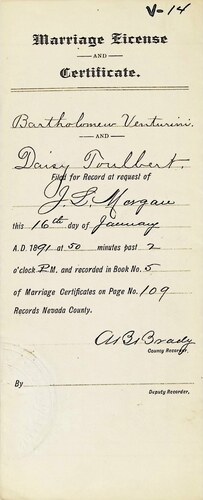 V-14
Marriage License
AND
Certificate.
Bartholomew Venturini
AND
Daisy Toulbert.
Filed for Record at request of
J. L. Morgan
this 16th day of January
A.D. 1891 at 50 minutes past 2
o'clock P.M. and recorded in Book No. 5
of Marriage Certificates on Page No. 109
Records Nevada County.
Brady
County Recorder.
By
Deputy Recorder.